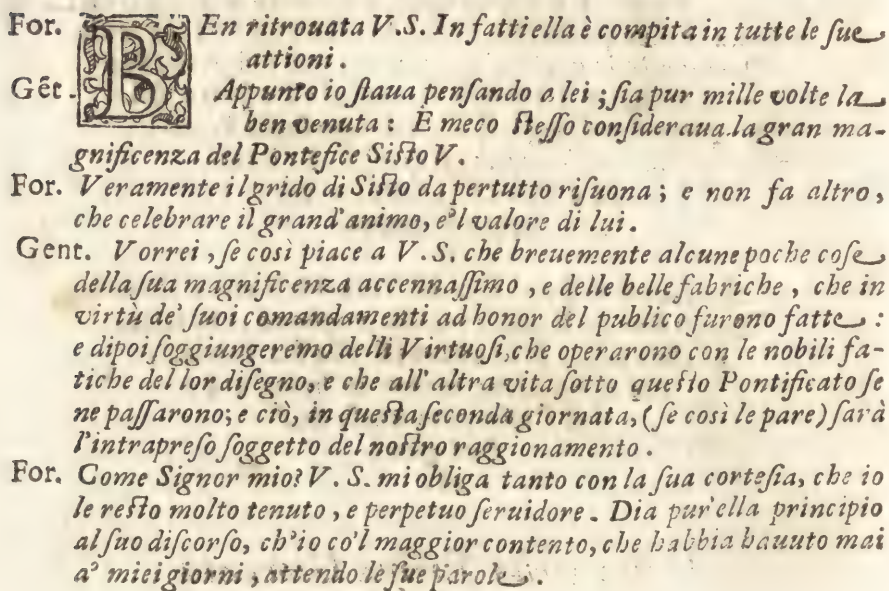 For. BEn ritrouata V.S. In fatti ella è compita in tutte le sue
attioni.
Gēt. Appunto io staua pensando a lei; sia pur mille volte la
ben venuta: E meco stesso consideraua la gran ma-
gnificenza del Pontefice Sisto V.
For. Veramente il grido di Sisto da pertutto risuona; e non fa altro,
che celebrare il grand'animo, e'l valore di lui.
Gent. Vorrei, se così piace a V.S. che breuemente alcune poche cose
della sua magnificenza accennassimo, e delle belle fabriche, che in
virtù de' suoi comandamenti ad honor del publico furono fatte:
e dipoi soggiungeremo delli Virtuosi, che operarono con le nobili fa-
tiche del lor disegno, e che all'altra vita sotto questo Pontificato se
ne passarono; e ciò, in questa seconda giornata, (se così le pare) sarà
l'intrapreso soggetto del nostro raggionamento.
For. Come Signor mio? V.S. mi obliga tanto con la sua cortesia, che io
le resto molto tenuto, e perpetuo seruidore. Dia pur'ella principio
al suo discorso, ch'io co'l maggior contento, che habbia hauuto mai
a' miei giorni, attendo le sue parole.